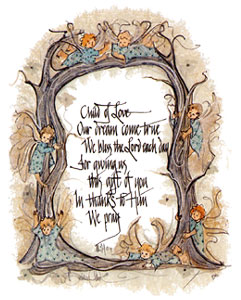 Child of Love
Our dream come true
We bless the Lord each day
For giving us
this gift of you
In thanks to Him
We pray